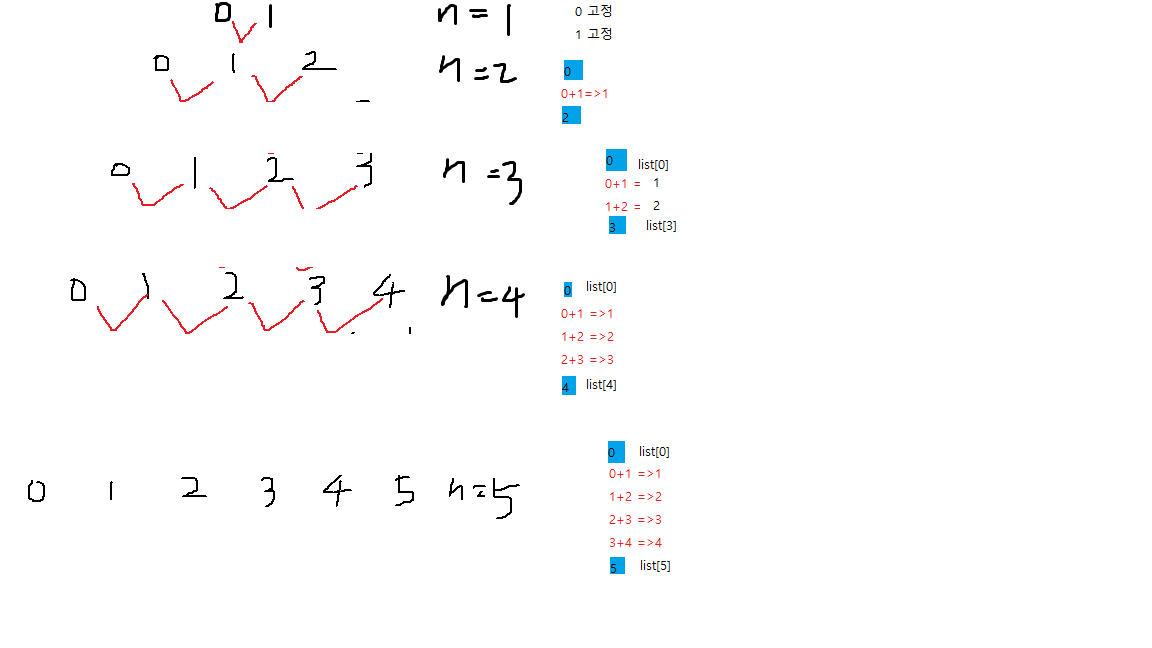 0 1 n=1
0 고정
1 고정
0 1 2 n=2
0
0+1=>1
2
0 1 2 3 n=3
0 list[0]
0+1 = 1
1+2 = 2
3 list[3]
0 1 2 3 4 n=4
0 list[0]
0+1 =>1
1+2 =>2
2+3 =>3
4 list[4]
0 1 2 3 4 5 n=5
0 list[0]
0+1 =>1
1+2 =>2
2+3 =>3
3+4 =>4
5 list[5]